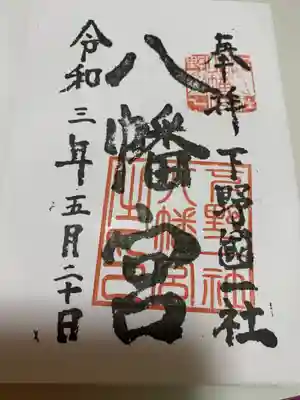 奉拝
下野國一社
八幡宮
令和三年五月二十日